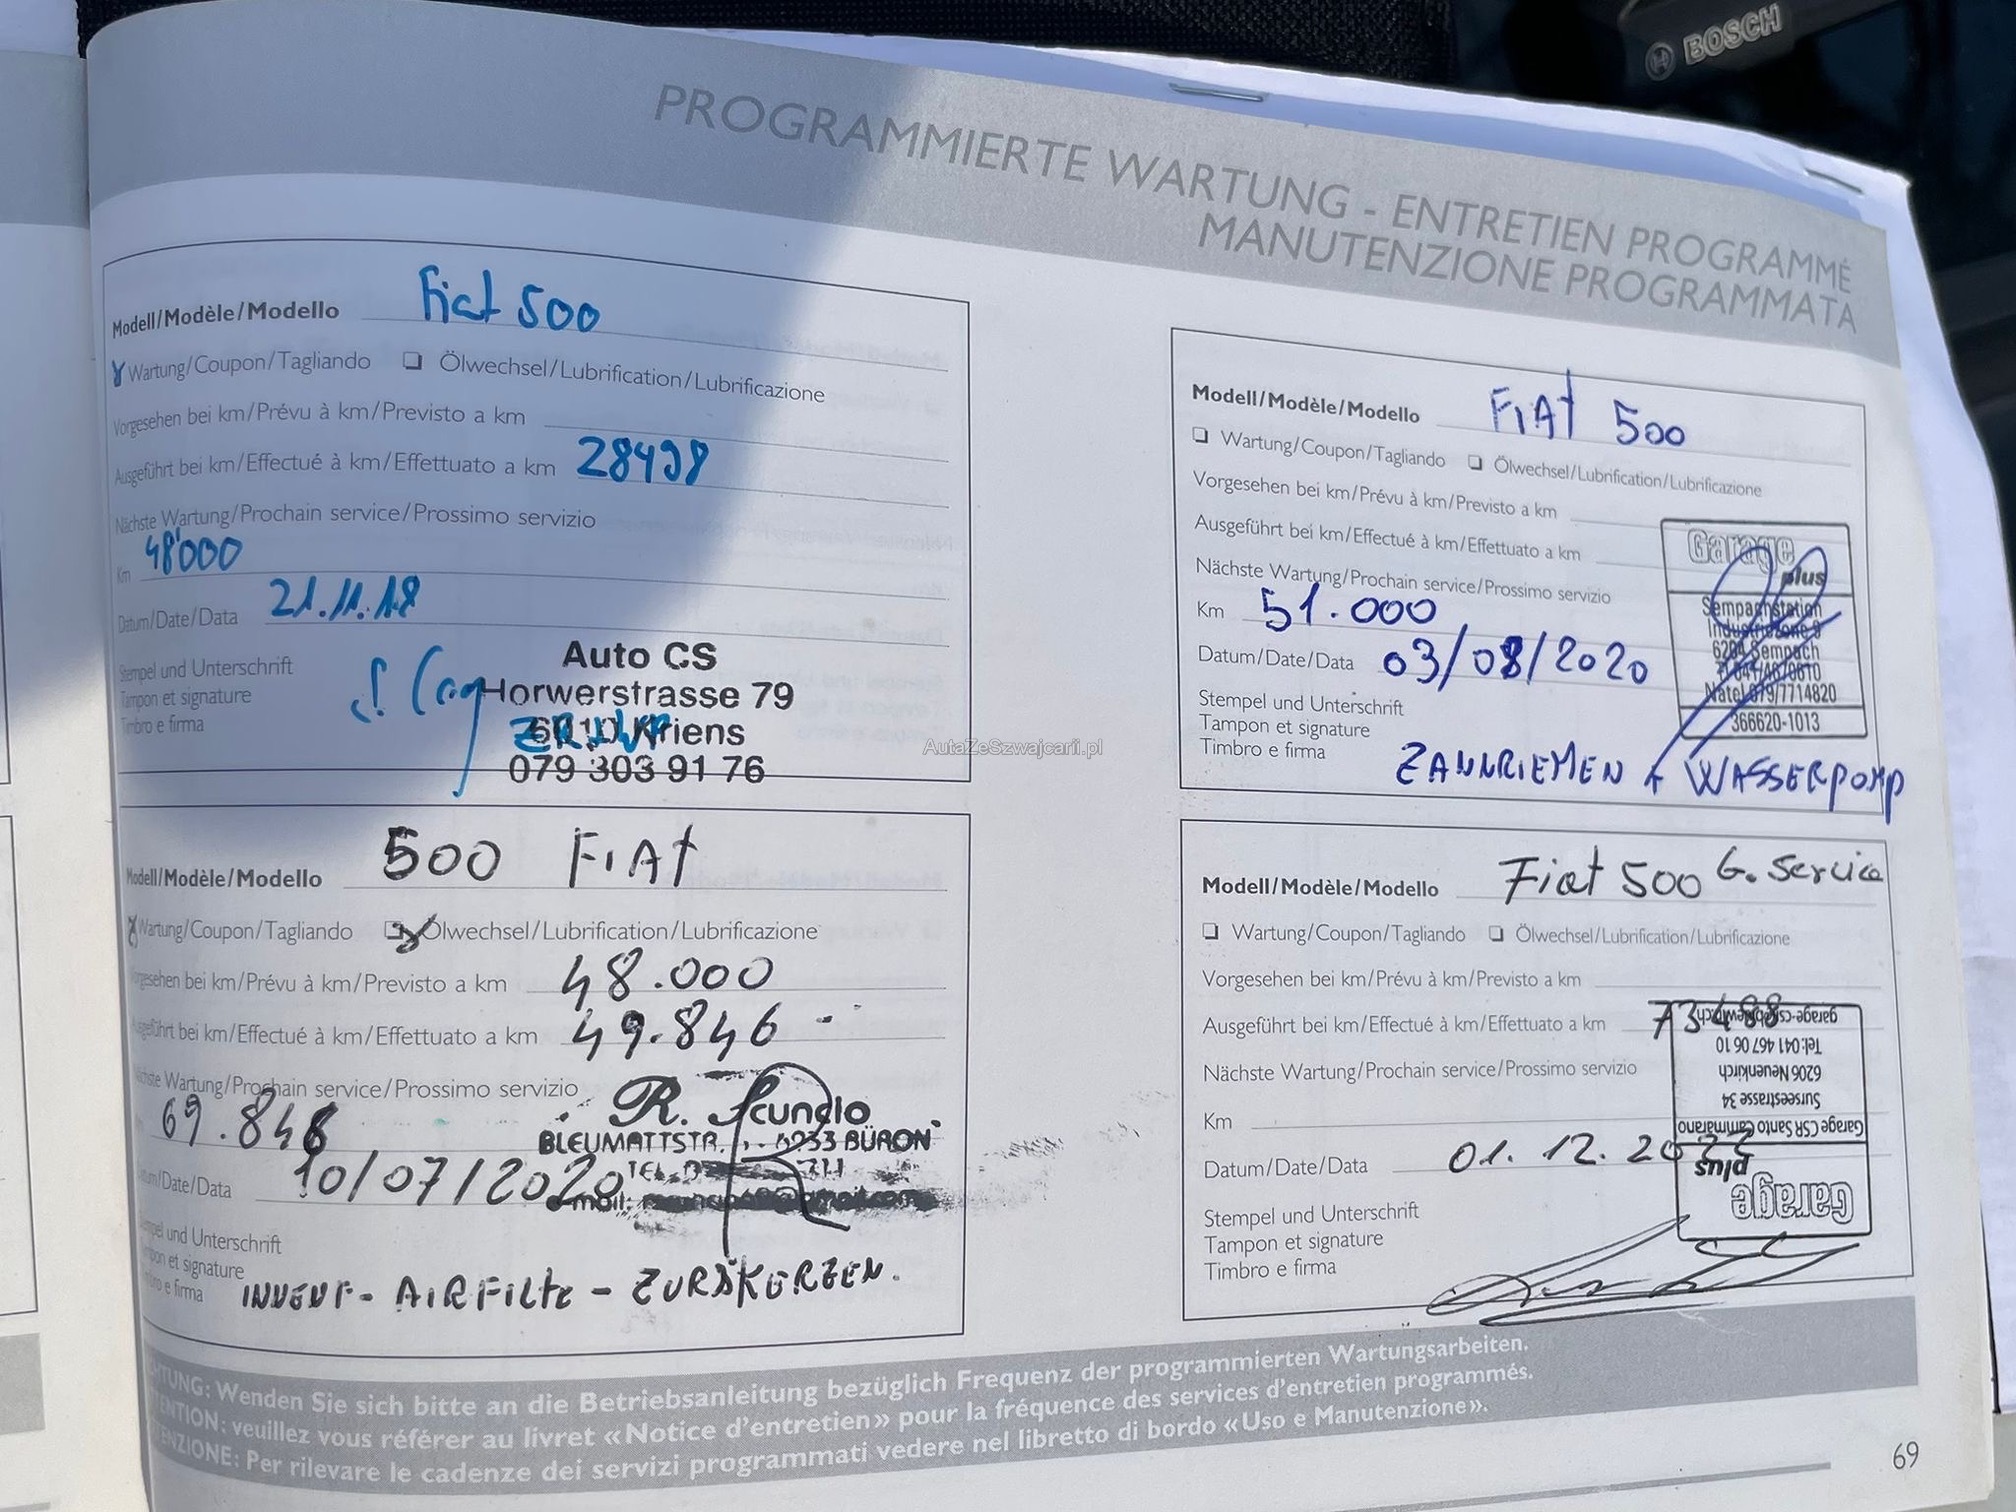 BOSCH
PROGRAMMIERTE WARTUNG - ENTRETIEN PROGRAMMÉ
MANUTENZIONE PROGRAMMATA
Modell/Modèle/Modello Fiat 500
Wartung/Coupon/Tagliando ❏ Ölwechsel/Lubrification/Lubrificazione
Vorgesehen bei km/Prévu à km/Previsto a km
Ausgeführt bei km/Effectué à km/Effettuato a km 28498
Nächste Wartung/Prochain service/Prossimo servizio
Km 48'000
Datum/Date/Data 21.11.18
Stempel und Unterschrift
Tampon et signature
Timbro e firma
Auto CS
Horwerstrasse 79
6010 Kriens
079 303 91 76
Modell/Modèle/Modello 500 FIAt
Wartung/Coupon/Tagliando Ölwechsel/Lubrification/Lubrificazione
gesehen bei km/Prévu à km/Previsto a km 48.000
geführt bei km/Effectué à km/Effettuato a km 49.846 -
chste Wartung/Prochain service/Prossimo servizio
69.846
um/Date/Data 10/07/2020
pel und Unterschrift
pon et signature
e firma
R. Scundlo
BLEUMATTSTR. 6233 BÜRON
TEL.
e-mail: @gmail.com
AIRFILtE -
Modell/Modèle/Modello FiAt 500
❏ Wartung/Coupon/Tagliando ❏ Ölwechsel/Lubrification/Lubrificazione
Vorgesehen bei km/Prévu à km/Previsto a km
Ausgeführt bei km/Effectué à km/Effettuato a km
Nächste Wartung/Prochain service/Prossimo servizio
Km 51.000
Datum/Date/Data 03/08/2020
Stempel und Unterschrift
Tampon et signature
Timbro e firma
Garage
plus
Sempachstation
Industriezone 9
6204 Sempach
Natel 079/7714820
366620-1013
ZANNRIEMEN + WASSERPOMP
AutaZeSzwajcarii.pl
Modell/Modèle/Modello Fiat 500 G. Service
❏ Wartung/Coupon/Tagliando ❏ Ölwechsel/Lubrification/Lubrificazione
Vorgesehen bei km/Prévu à km/Previsto a km
Ausgeführt bei km/Effectué à km/Effettuato a km 73488
Nächste Wartung/Prochain service/Prossimo servizio
Km
Datum/Date/Data 01. 12. 2022
Stempel und Unterschrift
Tampon et signature
Timbro e firma
Garage
plus
Garage CSR Santo Cammarano
Surseestrasse 34
6206 Neuenkirch
Tel: 041 467 06 10
TUNG: Wenden Sie sich bitte an die Betriebsanleitung bezüglich Frequenz der programmierten Wartungsarbeiten.
ENTION: veuillez vous référer au livret «Notice d'entretien» pour la fréquence des services d'entretien programmés.
ENZIONE: Per rilevare le cadenze dei servizi programmati vedere nel libretto di bordo «Uso e Manutenzione».
69